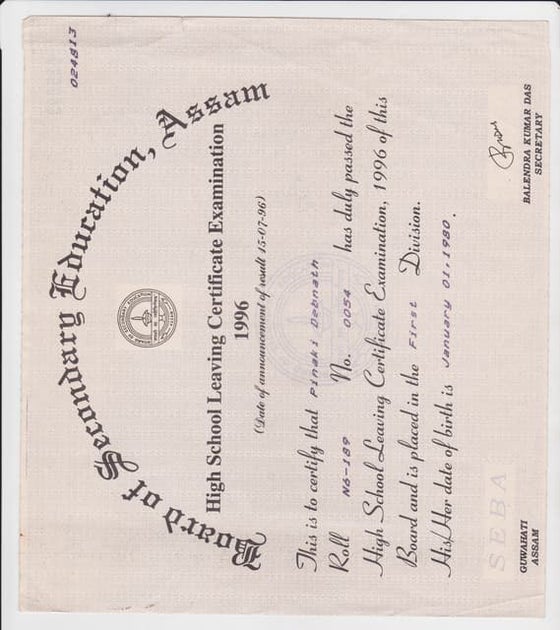 024813
Board of Secondary Education, Assam
High School Leaving Certificate Examination
1996
(Date of announcement of result 15-07-96)
This is to certify that Pinaki Debnath
Roll N6-189 No. 0054 has duly passed the
High School Leaving Certificate Examination, 1996 of this
Board and is placed in the First Division.
His/Her date of birth is January 01, 1980.
SEBA
GUWAHATI
ASSAM
BALENDRA KUMAR DAS
SECRETARY